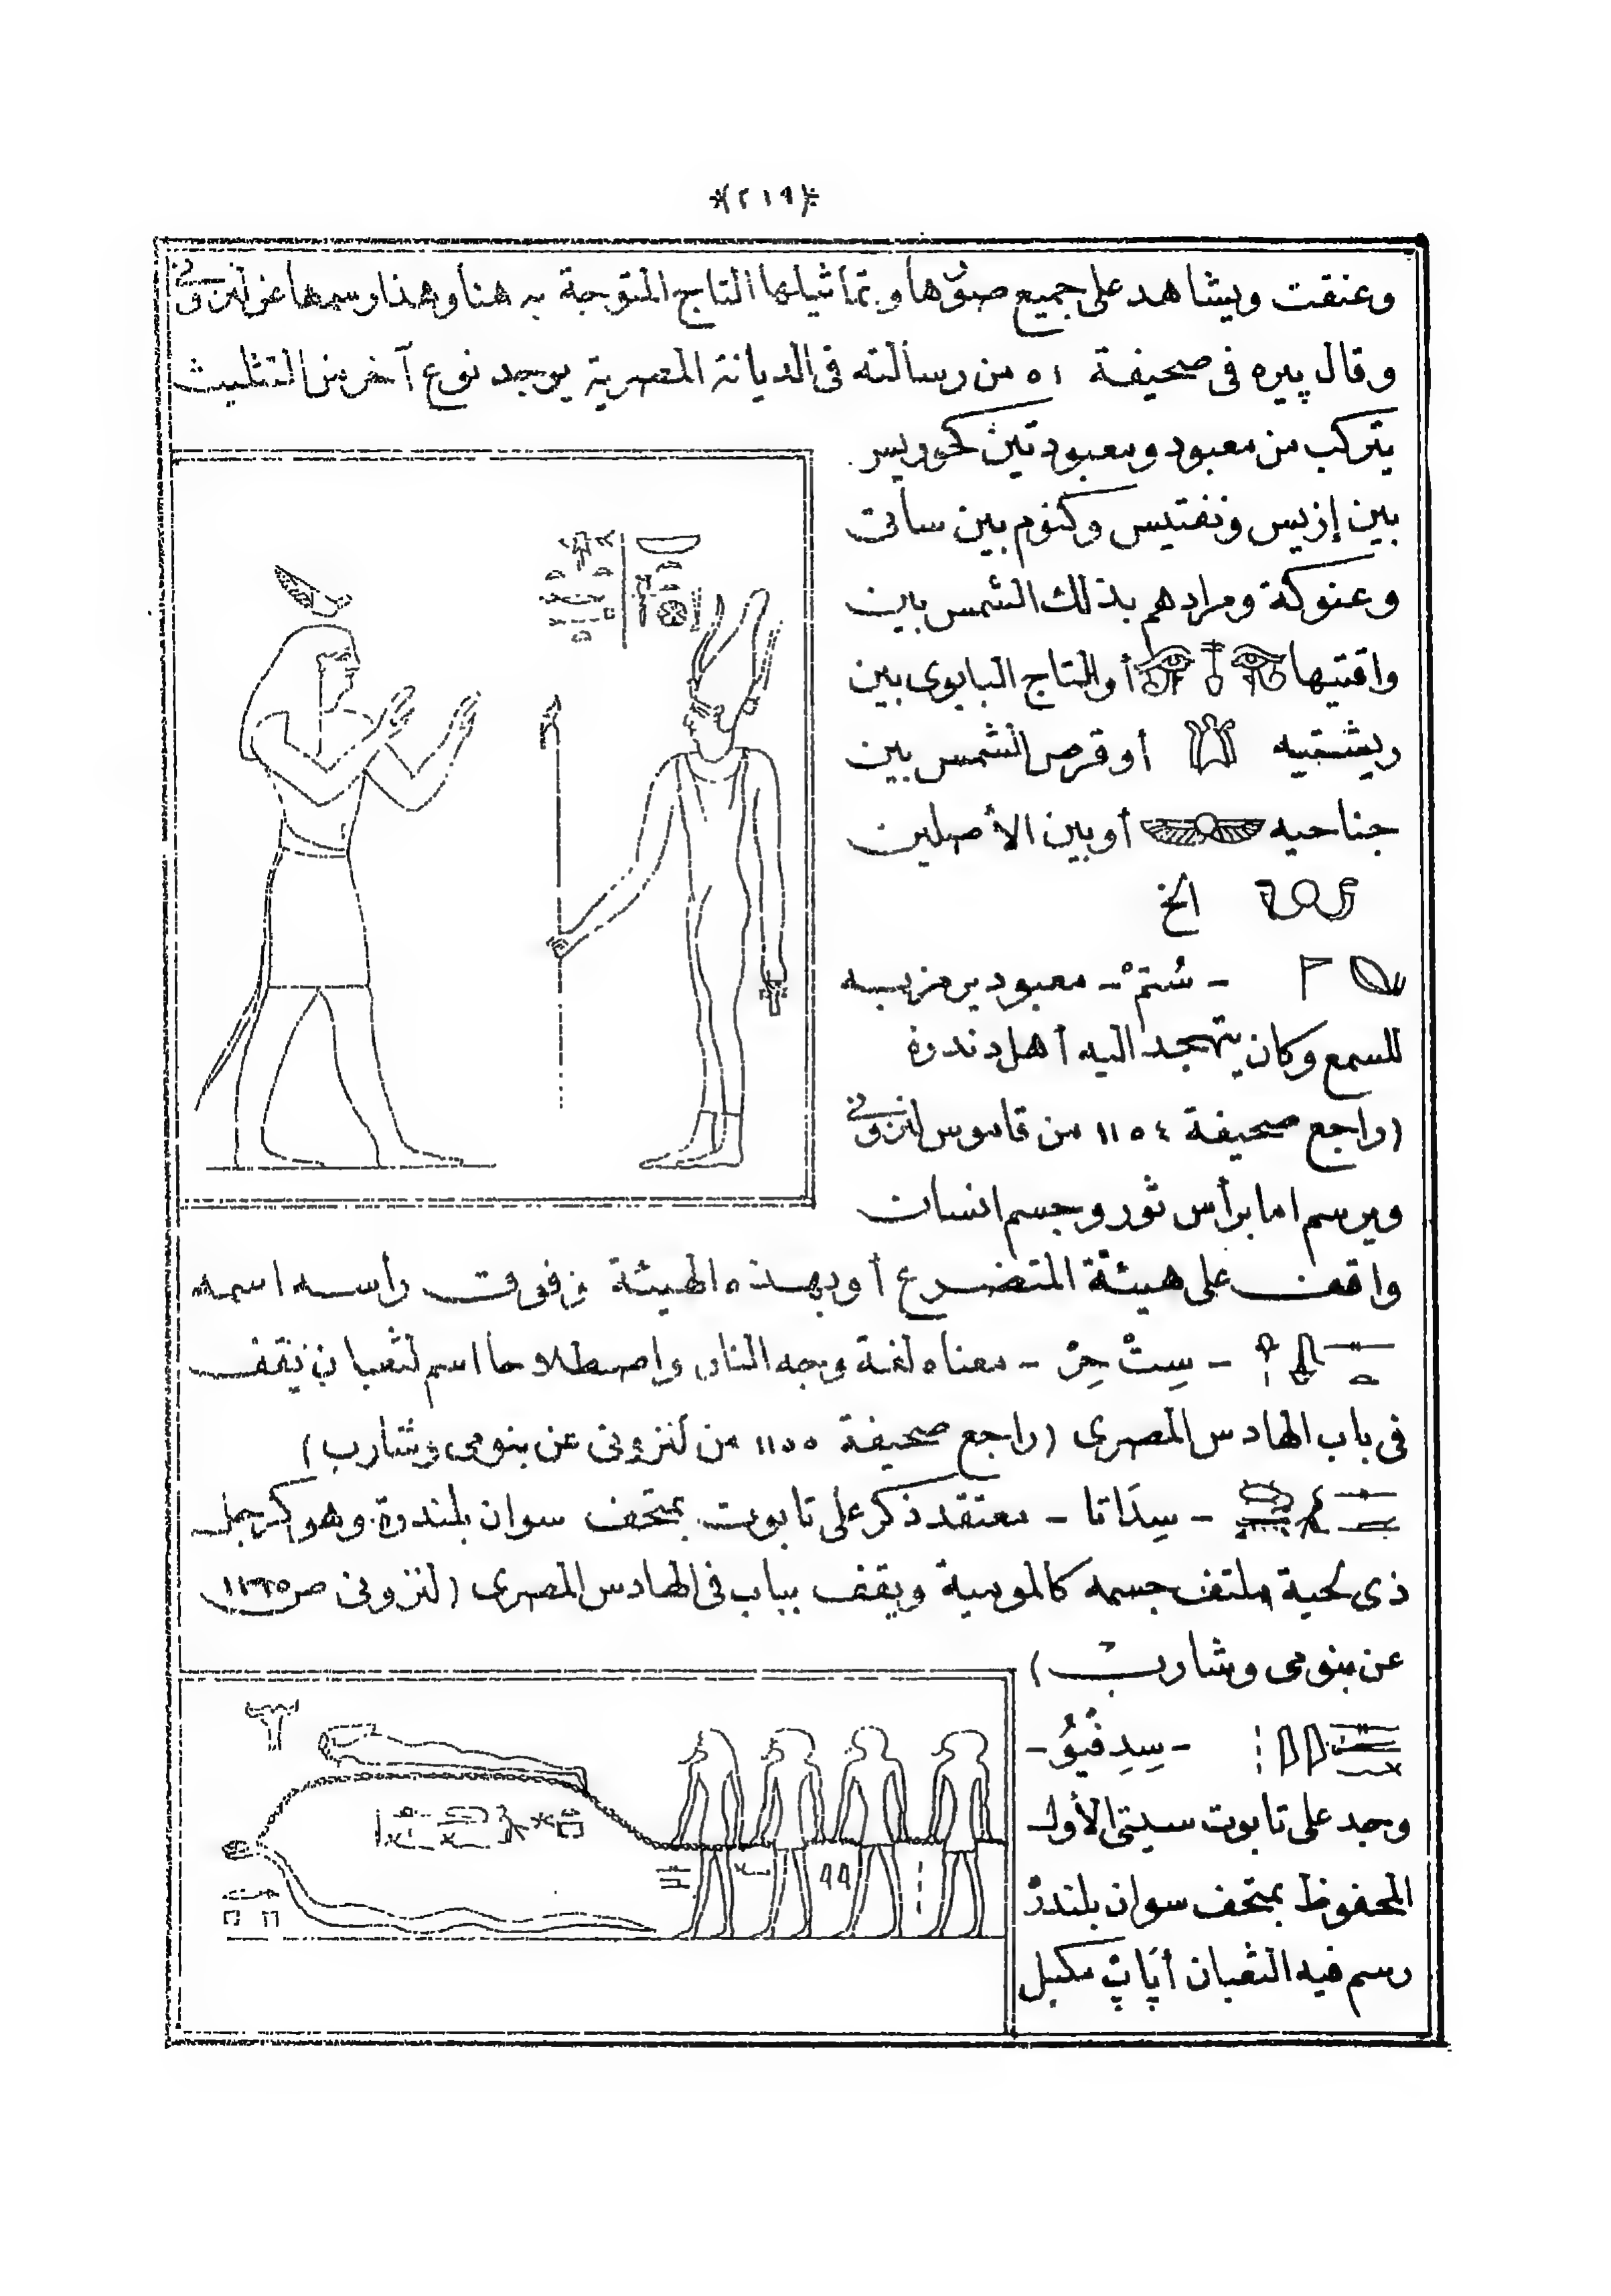 *(٢١٩)*
وعنقت ويشاهد على جميع صوّرها وتماثيلها التاج المتوجة به هنا وهذا رسمها عن لنزونى
وقال پيره فى صحيفة ٥١ من رسالته فى الديانة المصرية يوجد نوع آخر من التثليث
يتركب من معبود ومعبودتين كحوريس
بين إزيس ونفتيس وكنوم بين ساتى
وعنوكة ومرادهم بذلك الشمس بين
واقتيها أو التاج البابوى بين
ريشتيه أو قرص الشمس بين
جناحيه أو بين الأصلين
الخ
- سُتمْ - معبود يرمز به
للسمع وكان يتهجد اليه أهل دندرة
(راجع صحيفة ١١٥٤ من قاموس لنزونى
ويرسم اما برأس ثور وجسم انسان
واقف على هيئة المتضرع أو بهذه الهيئة وفوق رأسه اسمه
- سِتْ حِرْ - معناه لغة وجه النار واصطلاحا اسم لثعبان يقف
فى باب الهادس المصرى (راجع صحيفة ١١٥٥ من لنزونى عن بنومى وشارب)
- سِدَاتا - معتقد ذكر على تابوت بمتحف سوان بلندرة وهو كرجل
ذى لحية ملتف جسمه كالمومية ويقف بباب فى الهادس المصرى (لنزونى ص
عن بنومى وشارپ)
- سِدِفْيُو -
وجد على تابوت سيتى الأول
المحفوظ بمتحف سوان بلندرة
رسم فيه الثعبان أپاپ مكبل